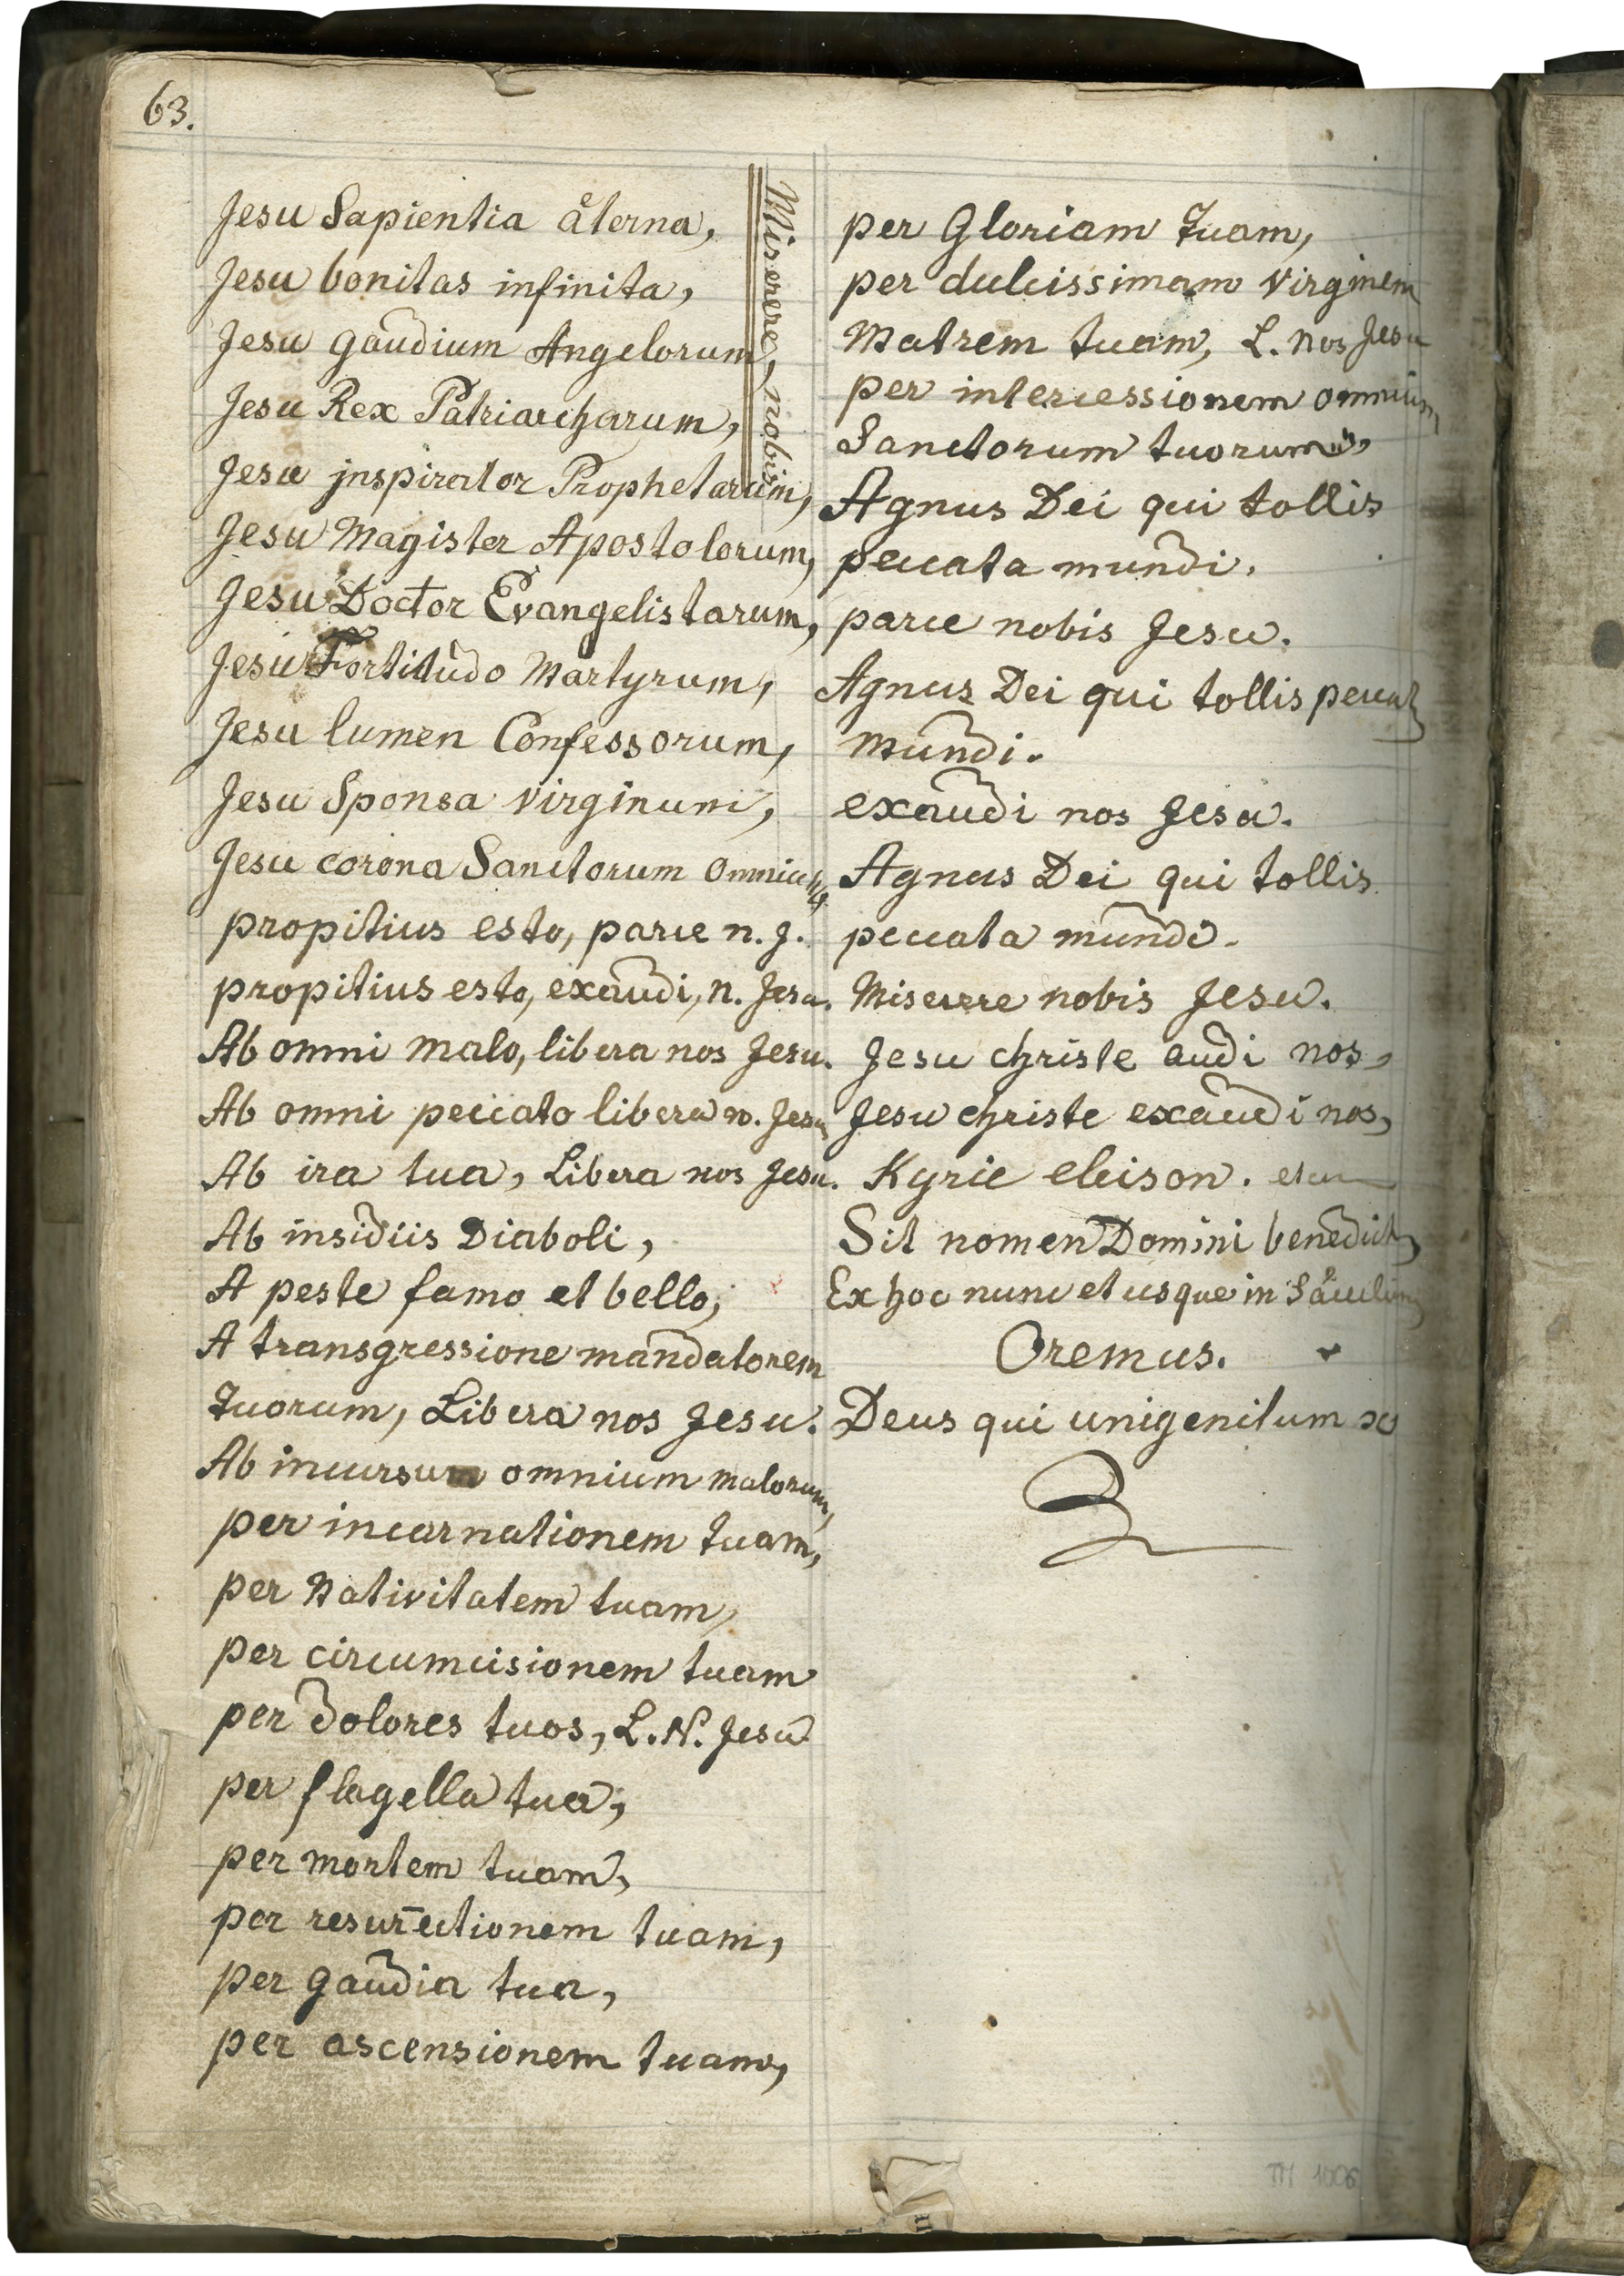 63.
Jesu Sapientia återna,
Jesu bonitas infinita,
Jesu gaudium Angelorum,
Jesu Rex Patriarcharum,
Jesu jnspirator Prophetarum,
Jesu Magister Apostolorum,
Jesu Doctor Evangelistarum,
Jesu Fortitudo Martyrum,
Jesu lumen Confessorum,
Jesu Sponsa Virginum,
Jesu corona Sanctorum omnium,
propitius esto, parce n. J.
propitius esto, exaudi, n. Jesu.
Ab omni malo, libera nos Jesu.
Ab omni peccato libera n. Jesu
Ab ira tua, Libera nos Jesu.
Ab insidiis Diaboli,
A peste famo et bello,
A transgressione mandatorem
Tuorum, Libera nos Jesu.
Ab incursum omnium malorum,
per incarnationem tuam,
per Nativitatem tuam,
per circumcisionem tuam
per dolores tuos, L. N. Jesu
per flagella tua,
per mortem tuam,
per resurectionem tuam,
per gaudia tua,
per ascensionem tuam,
Miserere, nobis
per Gloriam Tuam,
per dulcissimam Virginem
Matrem tuam, L. nos Jesu
per intercessionem omnium
Sanctorum tuorum,
Agnus Dei qui tollis
peccata mundi.
parce nobis Jesu.
Agnus Dei qui tollis peccat
mundi.
exaudi nos Jesu.
Agnus Dei qui tollis
peccata mundi.
Miserere nobis Jesu.
Jesu christe audi nos,
Jesu christe exaudi nos,
Kyrie eleison.
Sit nomen Domini benedict
Ex hoc nunc et usque in Såculum
Oremus.
Deus qui unigenitum
III 1006